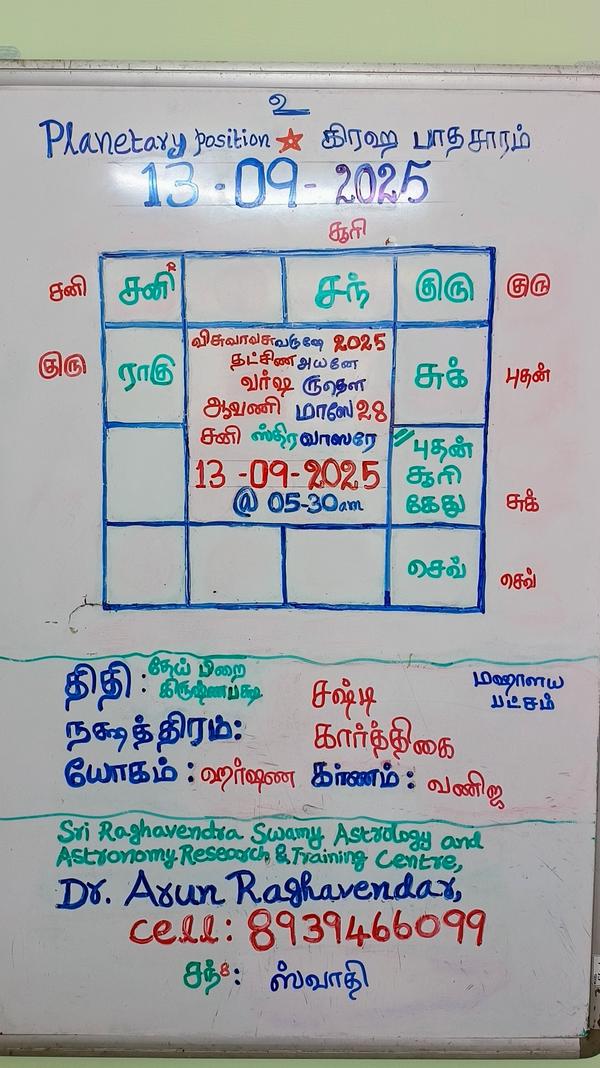 உ
Planetary position கிரஹ பாதசாரம்
13-09-2025
சூரி
சனி சனி R சந் குரு குரு
குரு ராகு சுக் புதன்
விசுவாவசுவருஷே 2025
தட்சிணஅயனே
வர்ஷ ருதௌ
ஆவணி மாஸே 28
சனி ஸ்திரவாஸரே
13-09-2025
@ 05-30am
புதன்
சூரி
கேது சுக்
செவ் செவ்
திதி: தேய் பிறை
கிருஷ்ணபக்ஷ சஷ்டி மஹாளய
பட்சம்
நக்ஷத்திரம்: கார்த்திகை
யோகம்: ஹர்ஷண கர்ணம்: வணிஜ
Sri Raghavendra Swamy Astrology and
Astronomy Research & Training Centre,
Dr. Arun Raghavendar,
Cell: 8939466099
சந் 8: ஸ்வாதி